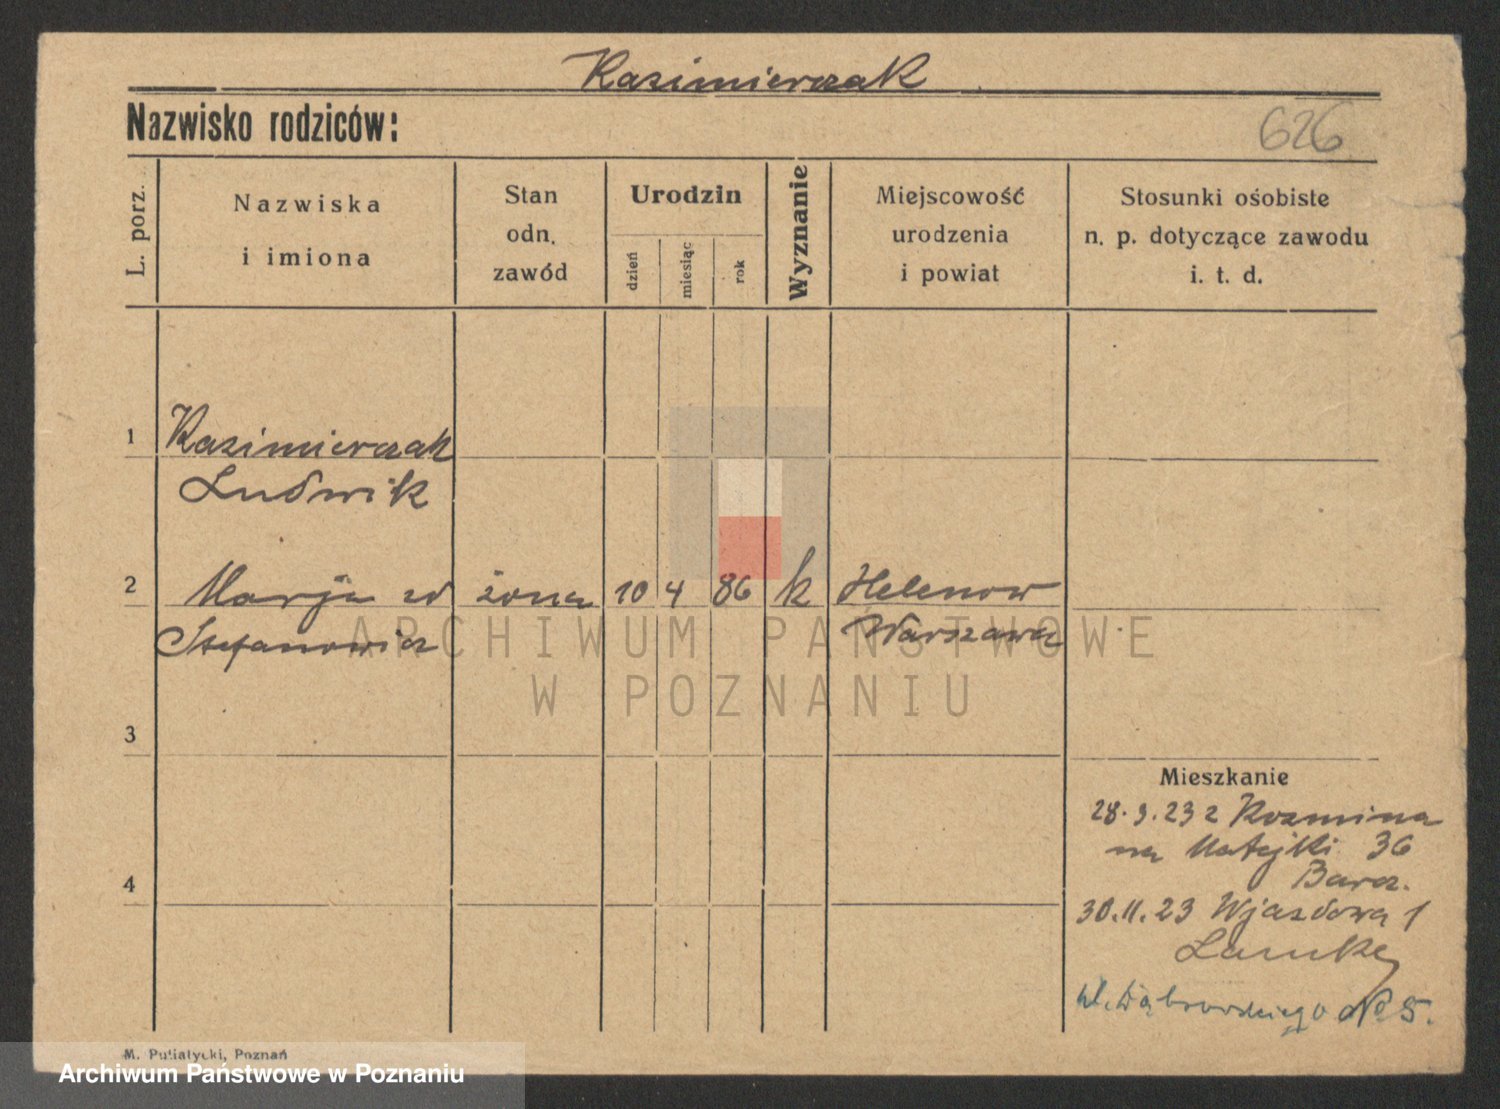 Kazimierczak
Nazwisko rodziców:
626
L. porz.
Nazwiska
i imiona
Stan
odn.
zawód
Urodzin
dzień
miesiąc
rok
Wyznanie
Miejscowość
urodzenia
i powiat
Stosunki osobiste
n. p. dotyczące zawodu
i. t. d.
1 Kazimierczak
Ludwik
2 Marja zd żona 10 4 86 k Helenow
Stefanowicz Warszawa
ARCHIWUM PAŃSTWOWE
W POZNANIU
3
Mieszkanie
28.3.23 z Kozmina
na Matejki 36
Barcz.
4
30.11.23 Wjazdowa 1
Lamke
ul. Dąbrowskiego No 5.
M. Putiatycki, Poznań
Archiwum Państwowe w Poznaniu